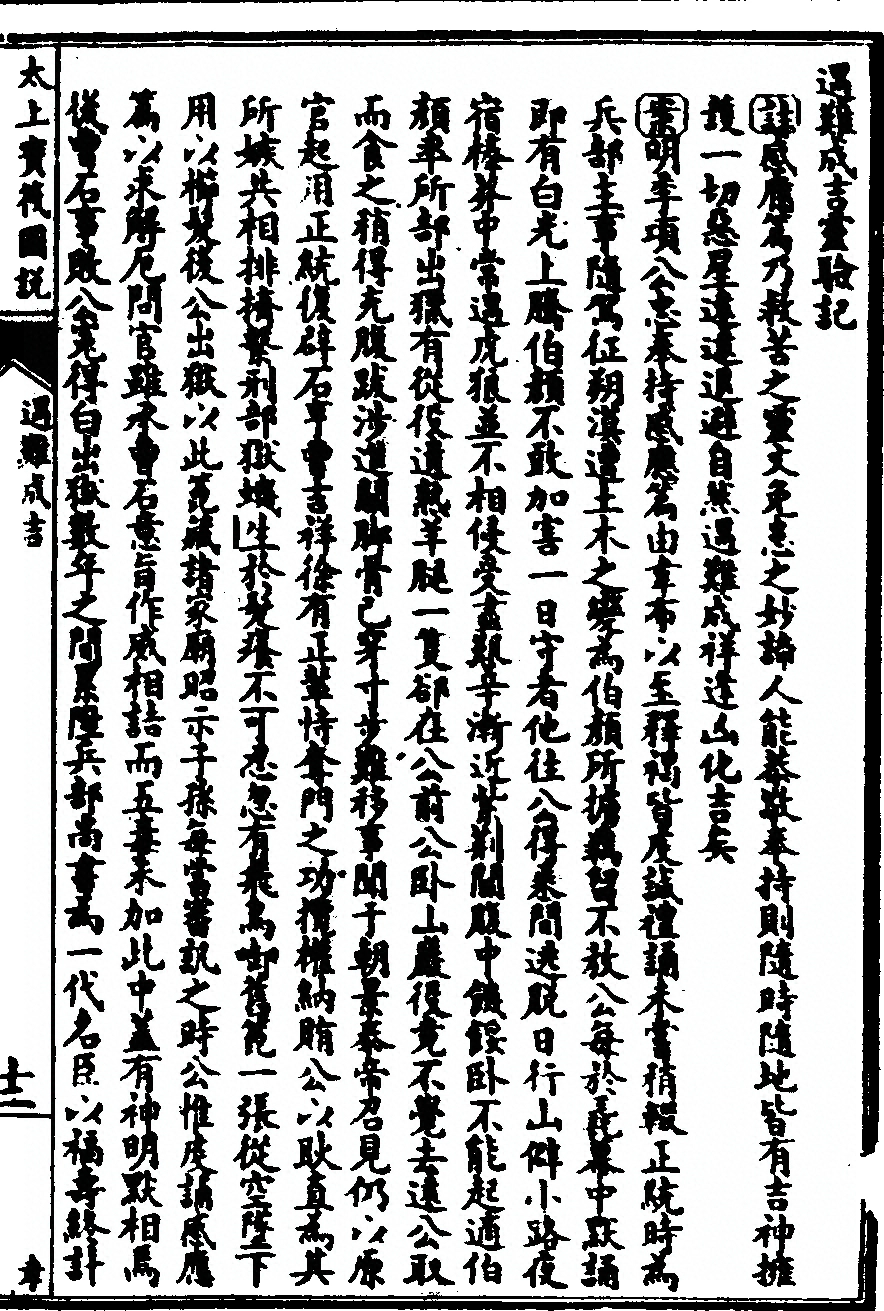 遇難成吉靈驗記
註感應篇乃救苦之靈文免患之妙諦人能恭敬奉持則隨時隨地皆有吉神擁
護一切惡星遠遠退避自然遇難成祥逢凶化吉矣
案明季項公忠奉持感應篇由韋布以至釋褐皆虔誠禮誦未嘗稍輟正統時為
兵部主事隨駕征朔漠遭土木之變為伯顏所擄羈留不放公每於昏暮中默誦
即有白光上騰伯顏不敢加害一日守者他往公得乘間逃脫日行山僻小路夜
宿榛莽中常遇虎狼並不相侵受盡艱辛漸近紫荊關腹中饑餒卧不能起適伯
顏率所部出獵有從役遺熟羊腿一隻卻在公前公卧山巖役竟不覺去遠公取
而食之稍得充腹跋涉進關脚骨已穿寸步難移事聞于朝景泰帝召見仍以原
官起用正統復辟石亨曹吉祥徐有正輩恃奪門之功攬權納賄公以耿直為其
所嫉共相排擠繫刑部獄蟣生於髮癢不可忍忽有飛鳥啣舊篦一張從空墜下
用以櫛髮後公出獄以此篦藏諸家廟昭示子孫每當審訊之時公惟虔誦感應
篇以求解厄問官雖承曹石意旨作威相詰而五毒未加此中蓋有神明默相焉
後曹石事敗公冤得白出獄數年之間累陞兵部尚書為一代名臣以福壽終計
太上寶筏圖說
遇難成吉
十二